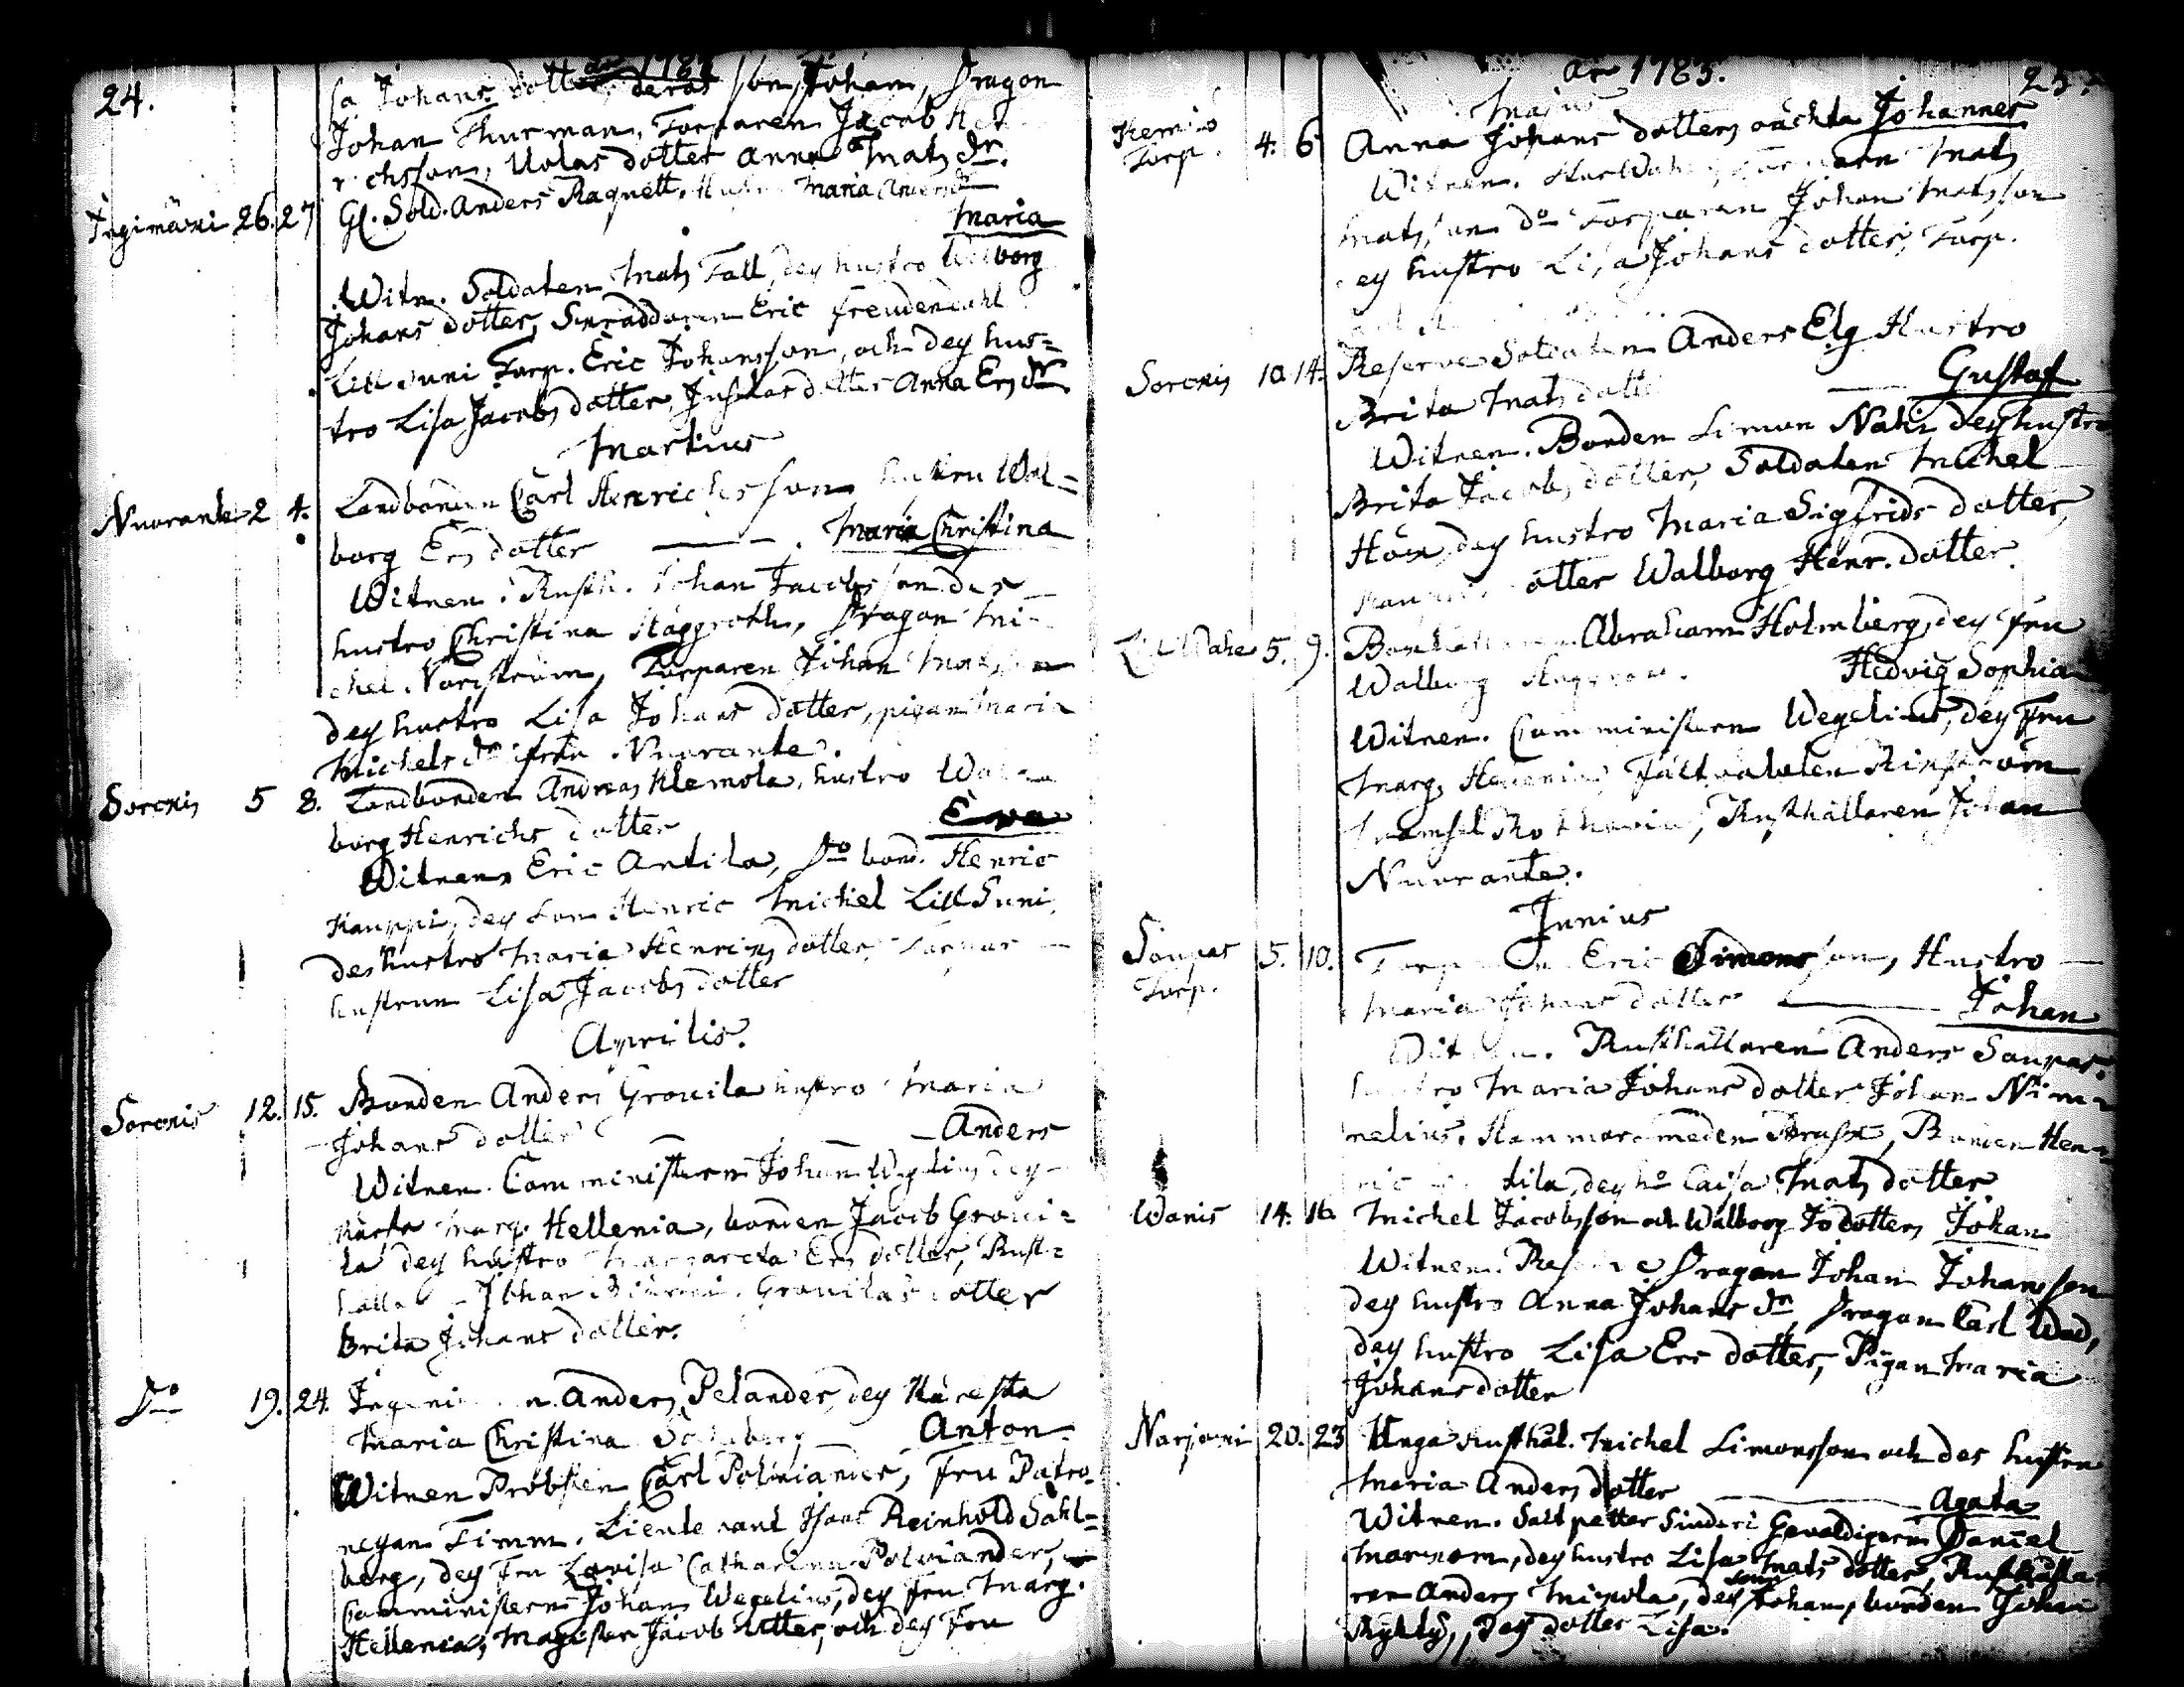 24.
år 1783
sa Johans dotter deras son Johan, Dragon
Johan Thurman, Torparen Jacob Hen
richsson, Uolas dotter Anna Mats dr.
Ingimäxi 26. 27 Gl. Sold. Anders Ragnett, Hustru Maria Anders dr
Maria
Witn. Soldaten Mats Fall, dess hustro Walborg
Johans dotter, Skräddaren Eric Freudendahl
Lill Suni Torp. Eric Johansson, och dess hus=
tro Lisa Jacobs dotter, Juslas dotter Anna Ers dr
Martius
Nuorante 2 4. Landbonden Carl Henrichsson hustru Wal=
borg Ers dotter — Maria Christina
Witnen. Rusth. Johan Jacobsson des
hustro Christina Häggroth, Dragon Mi=
chel Norström, Torparen Johan Matsson
dess hustro Lisa Johans dotter, pigan Maria
Michels dr ifrån Nuorante.
Sorenis 5 8. Landbonden Andreas Klemola, hustro Wal
borg Henrichs dotter Eva
Witnen Eric Antila, Do bond. Henric
Kauppi, dess son Henric Michel Lill Suni,
des hustro Maria Henrics dotter, Torpar
hustrun Lisa Jacobs dotter
Aprilis.
Sorenis 12. 15. Bonden Anders Grouila hustro Maria
Johans dotter — Anders
Witnen. Comministern Johan Wegelius dess
Kärsta Marg. Hellenia, bonden Jacob Groui=
la dess hustro Margareta Ers dotter, Rust=
hålla Johan Grouilas dotter
Brita Johans dotter.
Do 19. 24. Anders Pelander, dess Käresta
Maria Christina — Anton
Witnen Probsten Carl Polviander, Fru Patro=
negan Timm. Lieutenant Isaac Reinhold Sahl=
berg, dess Fru Lovisa Catharina Polviander,
Comministern Johan Wegelius, dess Fru Marg.
Hellenia, Magister Jacob Utter, och dess Fru
år 1783.
25.
Majus
Kemiö Torp. 4. 6 Anna Johans dotters oächta Johannes
Witnen. Mats
Matsson Do Torparen Johan Matsson
dess hustro Lisa Johans dotter, Torp.
Sorenis 10. 14. Reserve Soldaten Anders Elg Hustro
Brita Mats dotter — Gustaf
Witnen. Bonden Simon Nahi dess hustro
Brita Jacobs dotter, Soldaten Michel
Höök, dess hustro Maria Sigfrids dotter,
dotter Walborg Henr. dotter.
Lill Wahe 5. 9. Abraham Holmberg, dess Fru
Walborg Hedvig Sophia
Witnen. Comministern Wegelius, dess Fru
Marg. Hellenia, Fältwäbelen
Mamsel Rothovia, Rusthållaren Johan
Nuorante.
Junius
Saupas Torp. 5. 10. Torparen Eric Simonsson, Hustro
Maria Johans dotter — Johan
Witnen. Rusthållaren Anders Saupas,
hustro Maria Johans dotter Johan
nelius, Hammarsmeden Brask, Bonden Hen=
ric tila, dess ho Caisa Mats dotter
Wanis 14. 16. Michel Jacobsson och Walborg Jo dotters Johan
Witnen. Reserve Dragon Johan Johansson
dess hustro Anna Johans dr, Dragon Carl Wad,
dess hustro Lisa Ers dotter, Pigan Maria
Johans dotter
Narjoini 20. 23 Unga rusthål. Michel Simonsson och des hustru
Maria Anders dotter — Agata
Witnen. Saltpetter Siuderi Gevaldigern Daniel
dess hustro Lisa Mats dotter, Rusthålla
ren Anders Mickola, dess son Johan, bonden Johan
dess dotter Lisa.